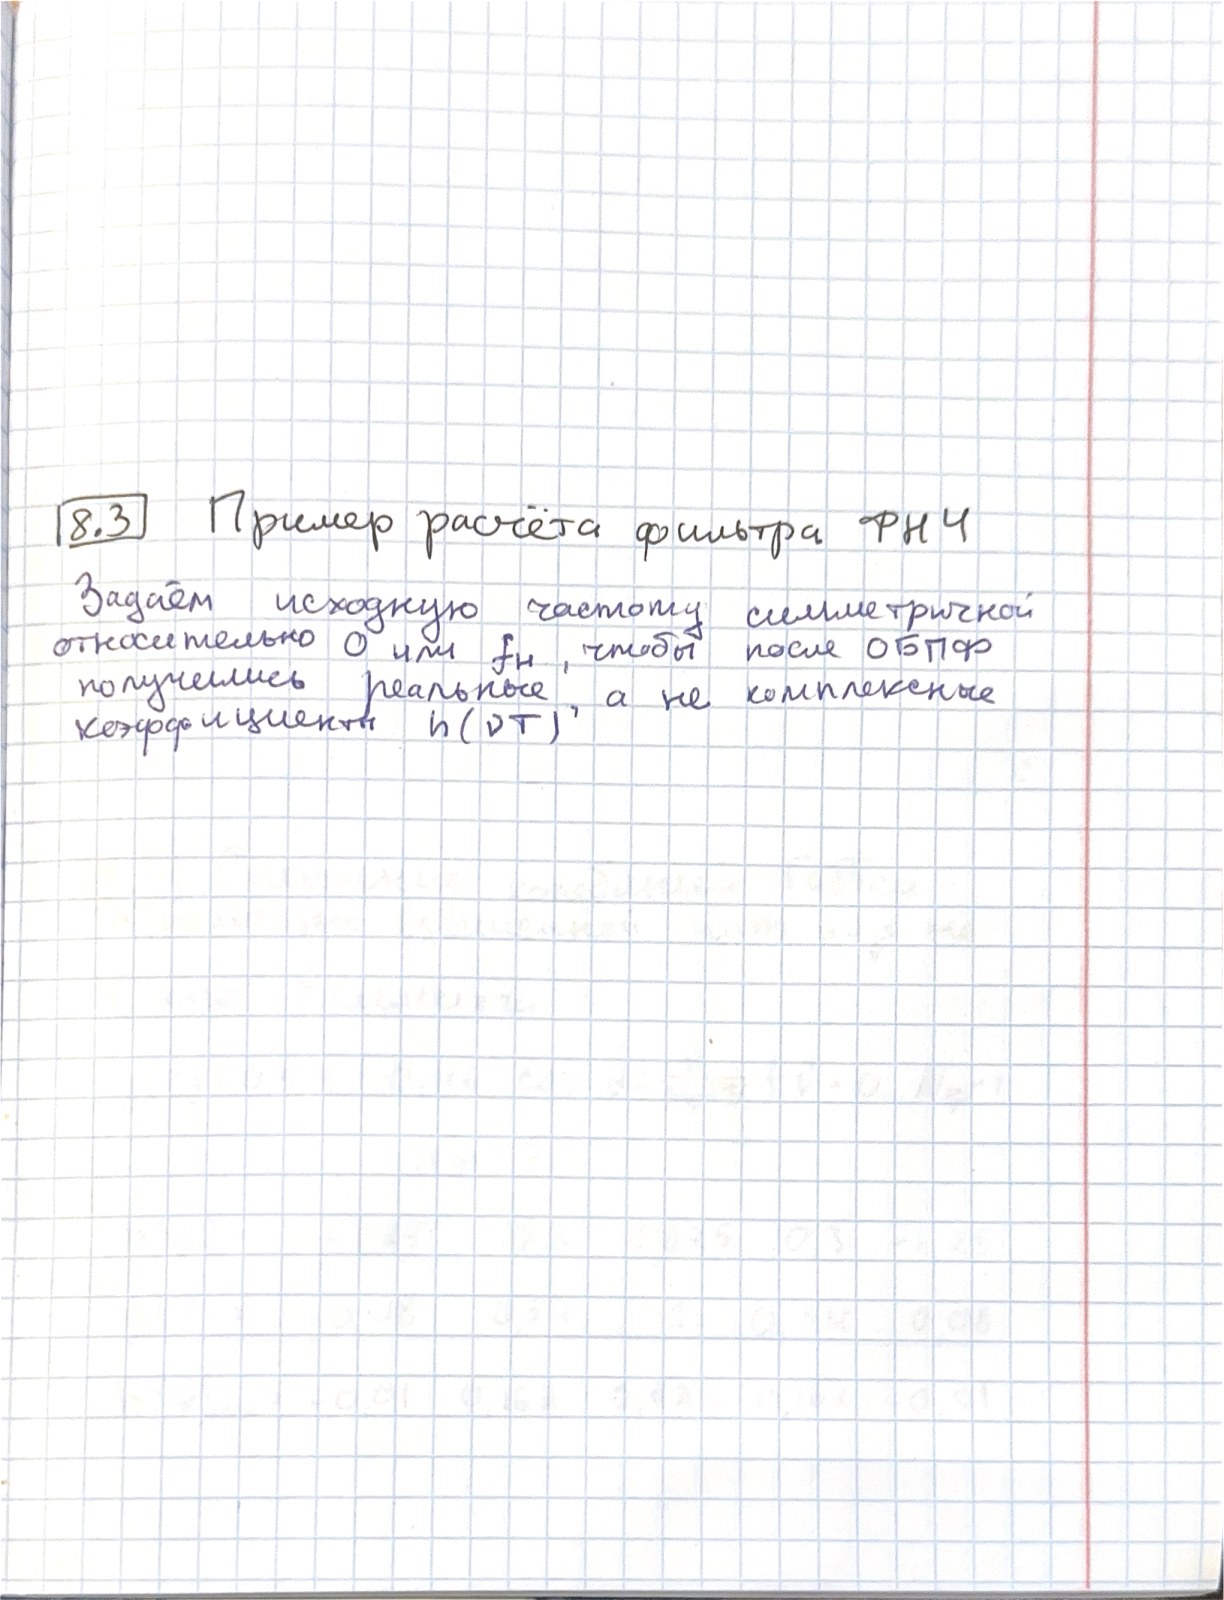 8.3 Пример расчёта фильтра ФНЧ
Задаём исходную частоту симметричной
относительно 0 или fн, чтобы после ОБПФ
получились реальные, а не комплексные
коэффициенты h(νT)